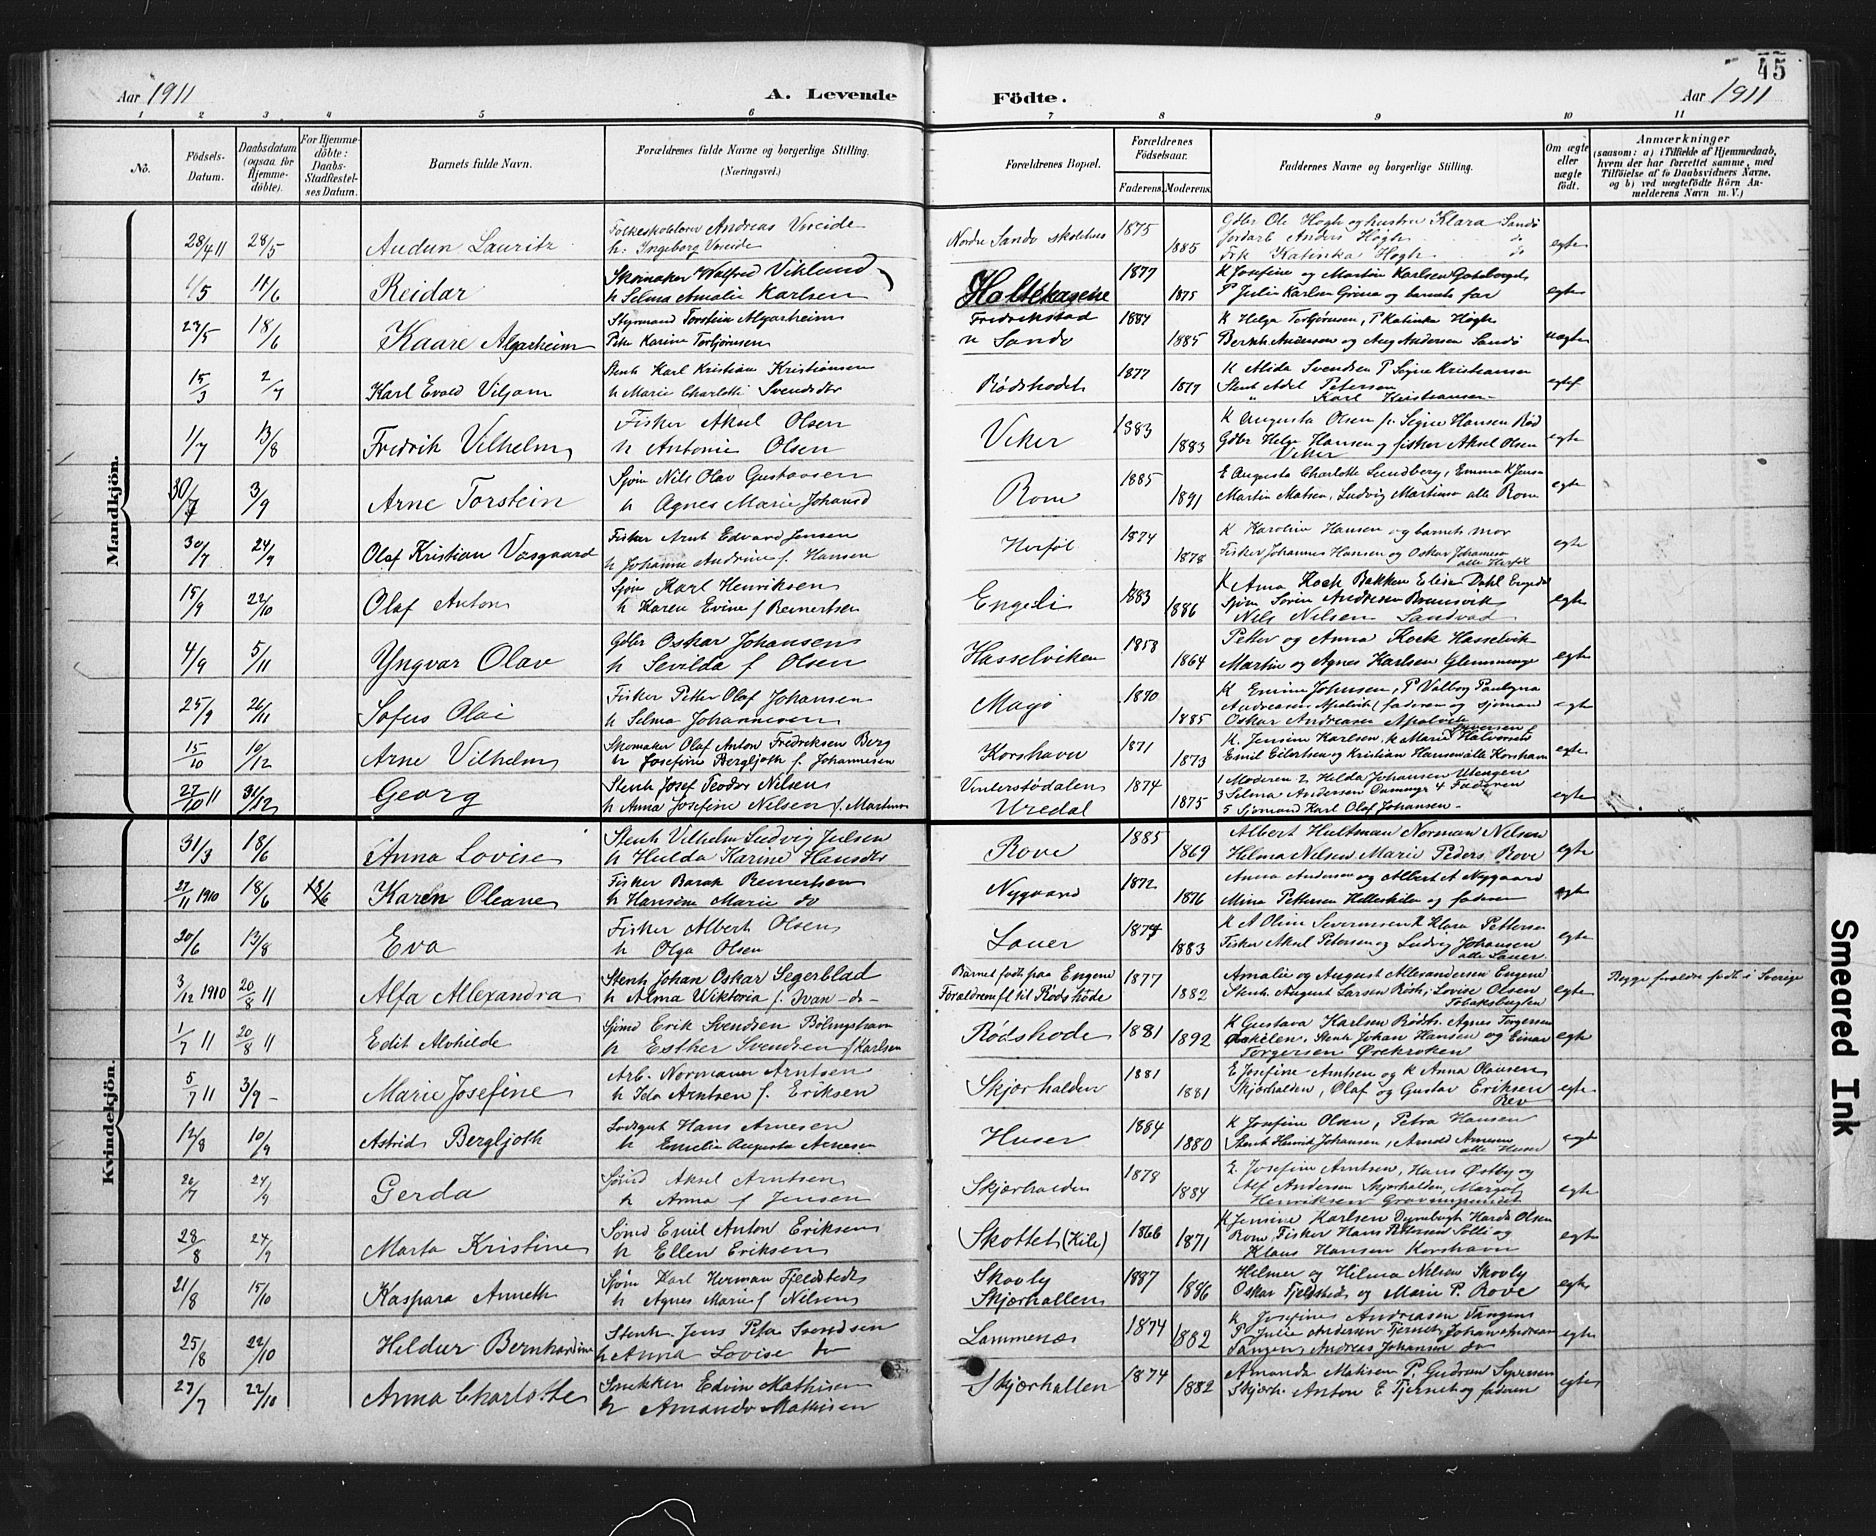 45
Aar 1911
A. Levende
Födte.
Aar 1911
1 2 3 4 5 6 7 8 9 10 11
No.
Födsels-Datum.
Daabsdatum (ogsaa for Hjemme-döbte).
For Hjemme-döbte: Daabs-Stadfæstel-ses Datum.
Barnets fulde Navn.
Forældrenes fulde Navne og borgerlige Stilling. (Næringsvei.)
Forældrenes Bopæl.
Forældrenes Födselsaar.
Faderens. Moderens.
Faddernes Navne og borgerlige Stilling.
Om ægte eller uægte födt.
Anmærkninger
(saasom: a) i Tilfælde af Hjemmedaab, hvem der har forrettet samme, med Tilföielse af to Daabsvidners Navne, og b) ved uægtefödte Börn An-melderens Navn m. V.)
Mandkjön.
28/4 11 28/5 Audun Lauritz Andreas Vereide 1875 Gdbr Ole Høgh og hustru Klara Sandø
h. Ingeborg Vereide Nordre Sandø skolehus 1885 Anders Høgh do egte
Frk Katinka Høgh do
1/5 11/6 Reidar Skomaker Walfred Viklund 1877 K Josefine og Martin Karlsen Goteborgs
h Selma Amalie Karlsen Holtekasene 1875 P Julie Karlsen Grena og barnets far egte
27/5 18/6 Kaare Algarheim Styrmand Torstein Algarheim Fredrikstad 1884 K Helga Torbjørnsen, P Katinka Høgh
Pike Karine Torbjørnsen n Sandø 1885 Bernh. Andersen og Aug Andersen Sandø uegte
15/3 2/7 Karl Evald Viljam Stenh Karl Kristian Kristiansen 1877 K Alida Svendsen P Signe Kristiansen
h Marie Charlotte Svendsdtr Rødshodet 1877 Stenh Adel Petersen
" Karl Kristiansen
1/7 13/8 Fredrik Vilhelm Fisker Aksel Olsen 1883 K Augusta Olsen p. Signe Hansen Rød
h Antonie Olsen Viker 1883 Gdbr Helge Hansen og fisker Aksel Olsen Viker egte
30/7 3/9 Arne Torstein Sjøm Nils Olav Gustavsen 1885 E Augusta Charlotte Lundberg, Emma K Jensen
h Agnes Marie Johansd Rom 1891 Martin Matsen, Ludvig Martinsen alle Rom egte
30/7 24/9 Olaf Kristian Vasgaard Fisker Arnt Edvard Jensen 1874 K Karoline Hansen og barnets mor
h Johanne Andrine f. Hansen Herføl 1878 Fisker Johannes Hansen og Oskar Johansen alle Herføl egte
15/9 22/10 Olaf Anton Sjøm Karl Henriksen 1883 K Anna Hoek Bakken Elise Dahl Engedal
h Karen Evine f Reinertsen Engeli 1886 Sjøm Søren Andresen Brunsvik egte
Nils Nilsen Sandvad
4/9 5/11 Yngvar Olav Gdbr Oskar Johansen 1858 Petter og Anna Kock Hasselvik
h Sevilda f Olsen Hasselviken 1864 Martin og Agnes Karlsen Glemminge egte
25/9 26/11 Sofus Olai Fisker Petter Olaf Johansen 1870 K Emma Johnsen, P Valbog
h Selma Johannesen Magø 1885 Andreasen Apalvik faderen og sjømand egte
Oskar Andreasen Apalvik
15/10 10/12 Arne Vilhelm Skomaker Olaf Anton Fredriksen Berg 1871 K. Jensine Karlsen, K Marie Halvorsen
h Josefine Bergljoth f. Johannesen Korshavn 1873 Emil Eilertsen og Kristian Hansen alle Korshavn egte
27/10 11 31/12 Georg Stenh Josef Teodor Nilsen Vinterstødalen 1874 1 Moderen 2 Helda Johansen Utengen
h Anna Josefine Nilsen f. Martinsen Uredal 1875 3 Selma Andersen 4 Faderen egte
5 Sjømand Karl Olaf Johansen
Kvindekjön.
31/3 18/6 Anna Lovise Stenh Vilhelm Ludvig Juelsen 1885 Albert Hultman Norman Nelsen
h Hulda Karine Hansdtr Rove 1869 Helma Nelsen Marie Peders Rove egte
27/11 1910 18/6 18/6 Karen Oleane Fisker Barak Reinertsen 1872 Anna Andersen og Albert A Nygaard
h Hansine Marie do Nygaard 1876 Mina Pettersen Helleskilen og faderen egte
20/6 13/8 Eva Fisker Albert Olsen 1874 K A Oline Severinsen K Klara Pettersen
h Olga Olsen Lauer 1883 Fisker Aksel Petersen og Ludvig Johansen alle Lauer egte
3/12 1910 20/8 11 Alfa Allexandra Stenh Johan Oskar Segerblad Barnet født paa Engene 1877 Amalie og August Allexandersen Engene
h Alma Wiktoria f. Ivan -do- Forældrene fl til Rødshøde 1882 Stenh. August Larsen Rødsh, Lovise Olsen Tobaksbugten egte Begge foreldre født i Sverige
1/7 11 20/8 11 Edit Alvhilde Sjømd Erik Svendsen Bölingshavn 1881 K Gustava Karlsen Rødsh. Agnes Torgersen
h Esther Svendsen f Karlsen Rødshode 1892 Stenh Johan Hansen og Einar egte
Torgersen Ørekroken
5/7 11 3/9 Marie Josefine Arb. Normann Arntsen 1881 E Josefine Arntsen og K Anna Olausen
h Ida Arntsen f. Eriksen Skjærhalden 1881 Skjærhalden, Olaf og Gustav Eriksen Rev egte
12/8 10/9 Astrid Bergljoth Lodsgut Hans Arnesen 1884 K Josefine Olsen, Petra Hansen
h Emelie Augusta Arnesen Huser 1880 Stenh Henrik Johansen, Arnold Arnesen alle Huser egte
26/7 24/9 Gerda Sjømd Aksel Arntsen 1878 E. Josefine Arntsen, Hans Østby og
h Anna f Jensen Skjærhalden 1884 Alf Andersen Skjærhalden, Margot egte
Henriksen
28/8 24/9 Marta Kristine Sømd Emil Anton Eriksen 1866 K Jensine Karlsen Harda Olsen
h Ellen Eriksen Skottet (Kile) 1871 Rom, Fisker Hans Pettersen Sølli og egte
Klaus Hansen Korshavn
21/8 15/10 Kaspara Anneth Sjøm Karl Herman Fjeldstedt Skovly 1887 Hilmer og Hilma Nelsen Skovly
h Agnes Marie f Nilsen Skjærhallen 1886 Oskar Fjeldsted og Marie P. Rove egte
25/8 22/10 Heldur Bernhardine Stenh. Jens Peter Svendsen 1874 K Josefine Andreasen Tangen
h Anna Lovise do Lammenæs 1882 P Julie Andersen Tjernet, Johan Andreasen egte
Tangen, Andreas Johansen do
27/7 22/10 Anna Charlotte Snekker Edvin Mathisen 1874 Amanda Matisen P. Gudrun Syversen
h Amanda Mathisen Skjærhallen 1882 Skjærh. Anton E Tjernet og faderen egte
Smeared Ink